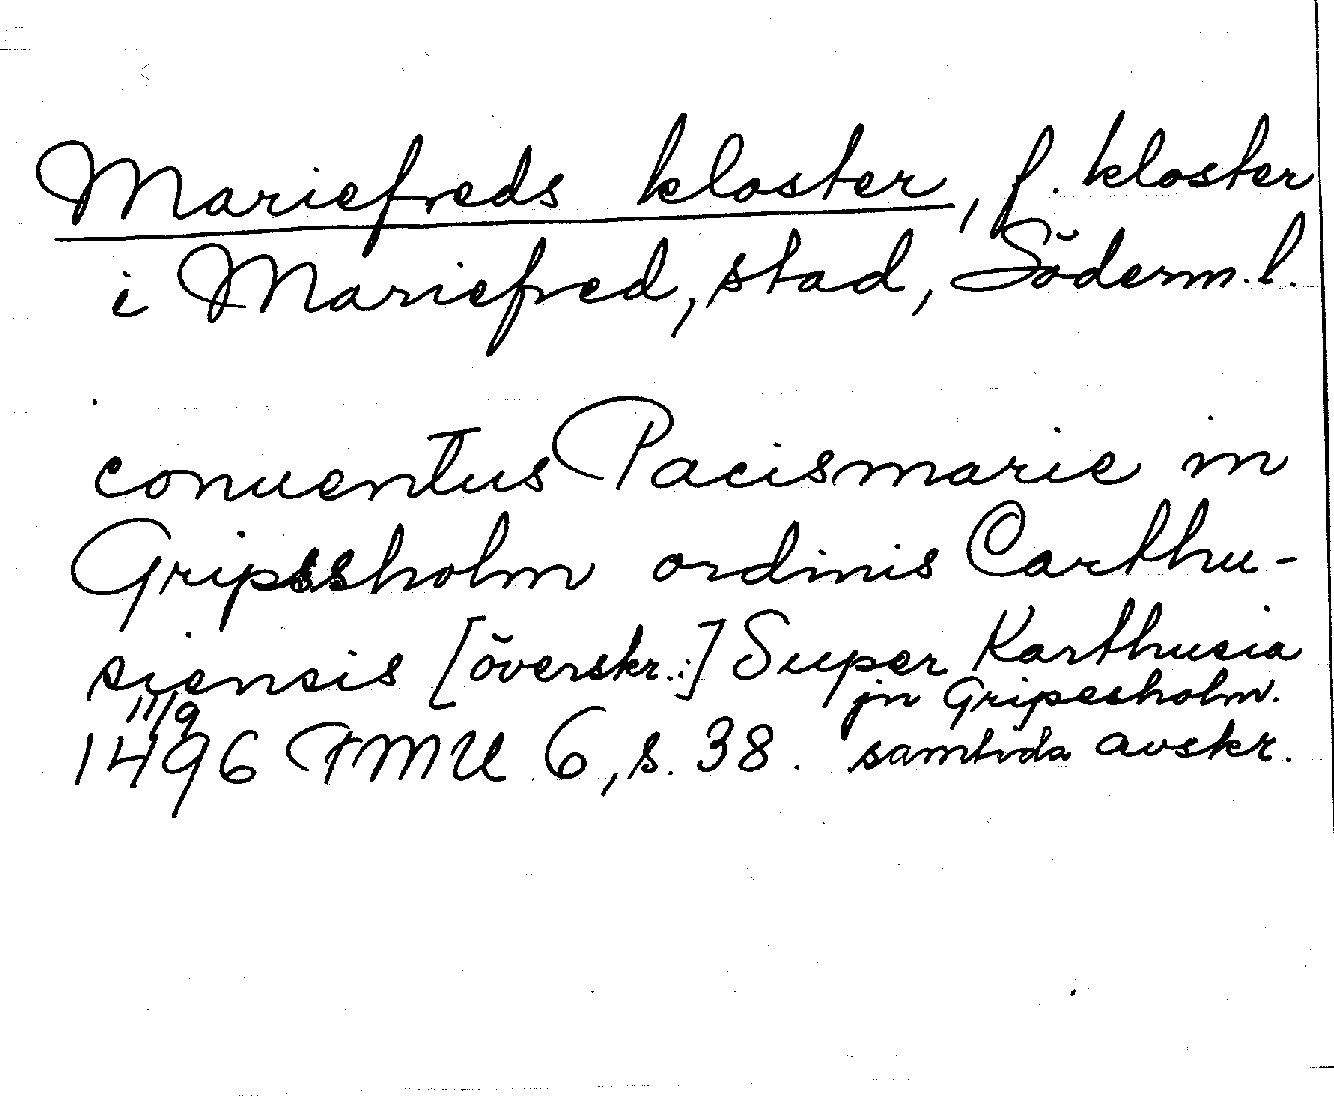 Mariefreds kloster, f. kloster
i Mariefred, stad, Söderm.l.
conuentus Pacismarie in
Gripssholm ordinis Carthu-
siensis [överskr.:] Super Karthusia
jn Gripesholm.
11/9
1496 FMU 6, s. 38. samtida avskr.